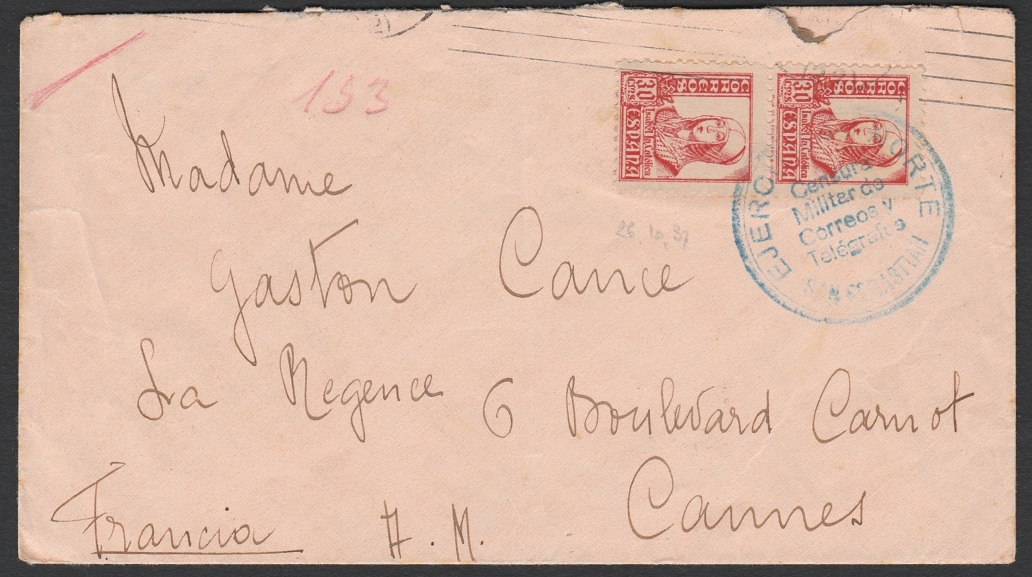 153
CORREOS
30 CTS
ESPAÑA
Isabel la Católica
CORREOS
30 CTS
ESPAÑA
Isabel la Católica
EJERC NORTE
Censura
Militar de
Correos y
Telégrafos
SAN SEBASTIAN
26.10.37
Madame
Gaston Cance
La Regence 6 Boulevard Carnot
Cannes
Francia A. M.